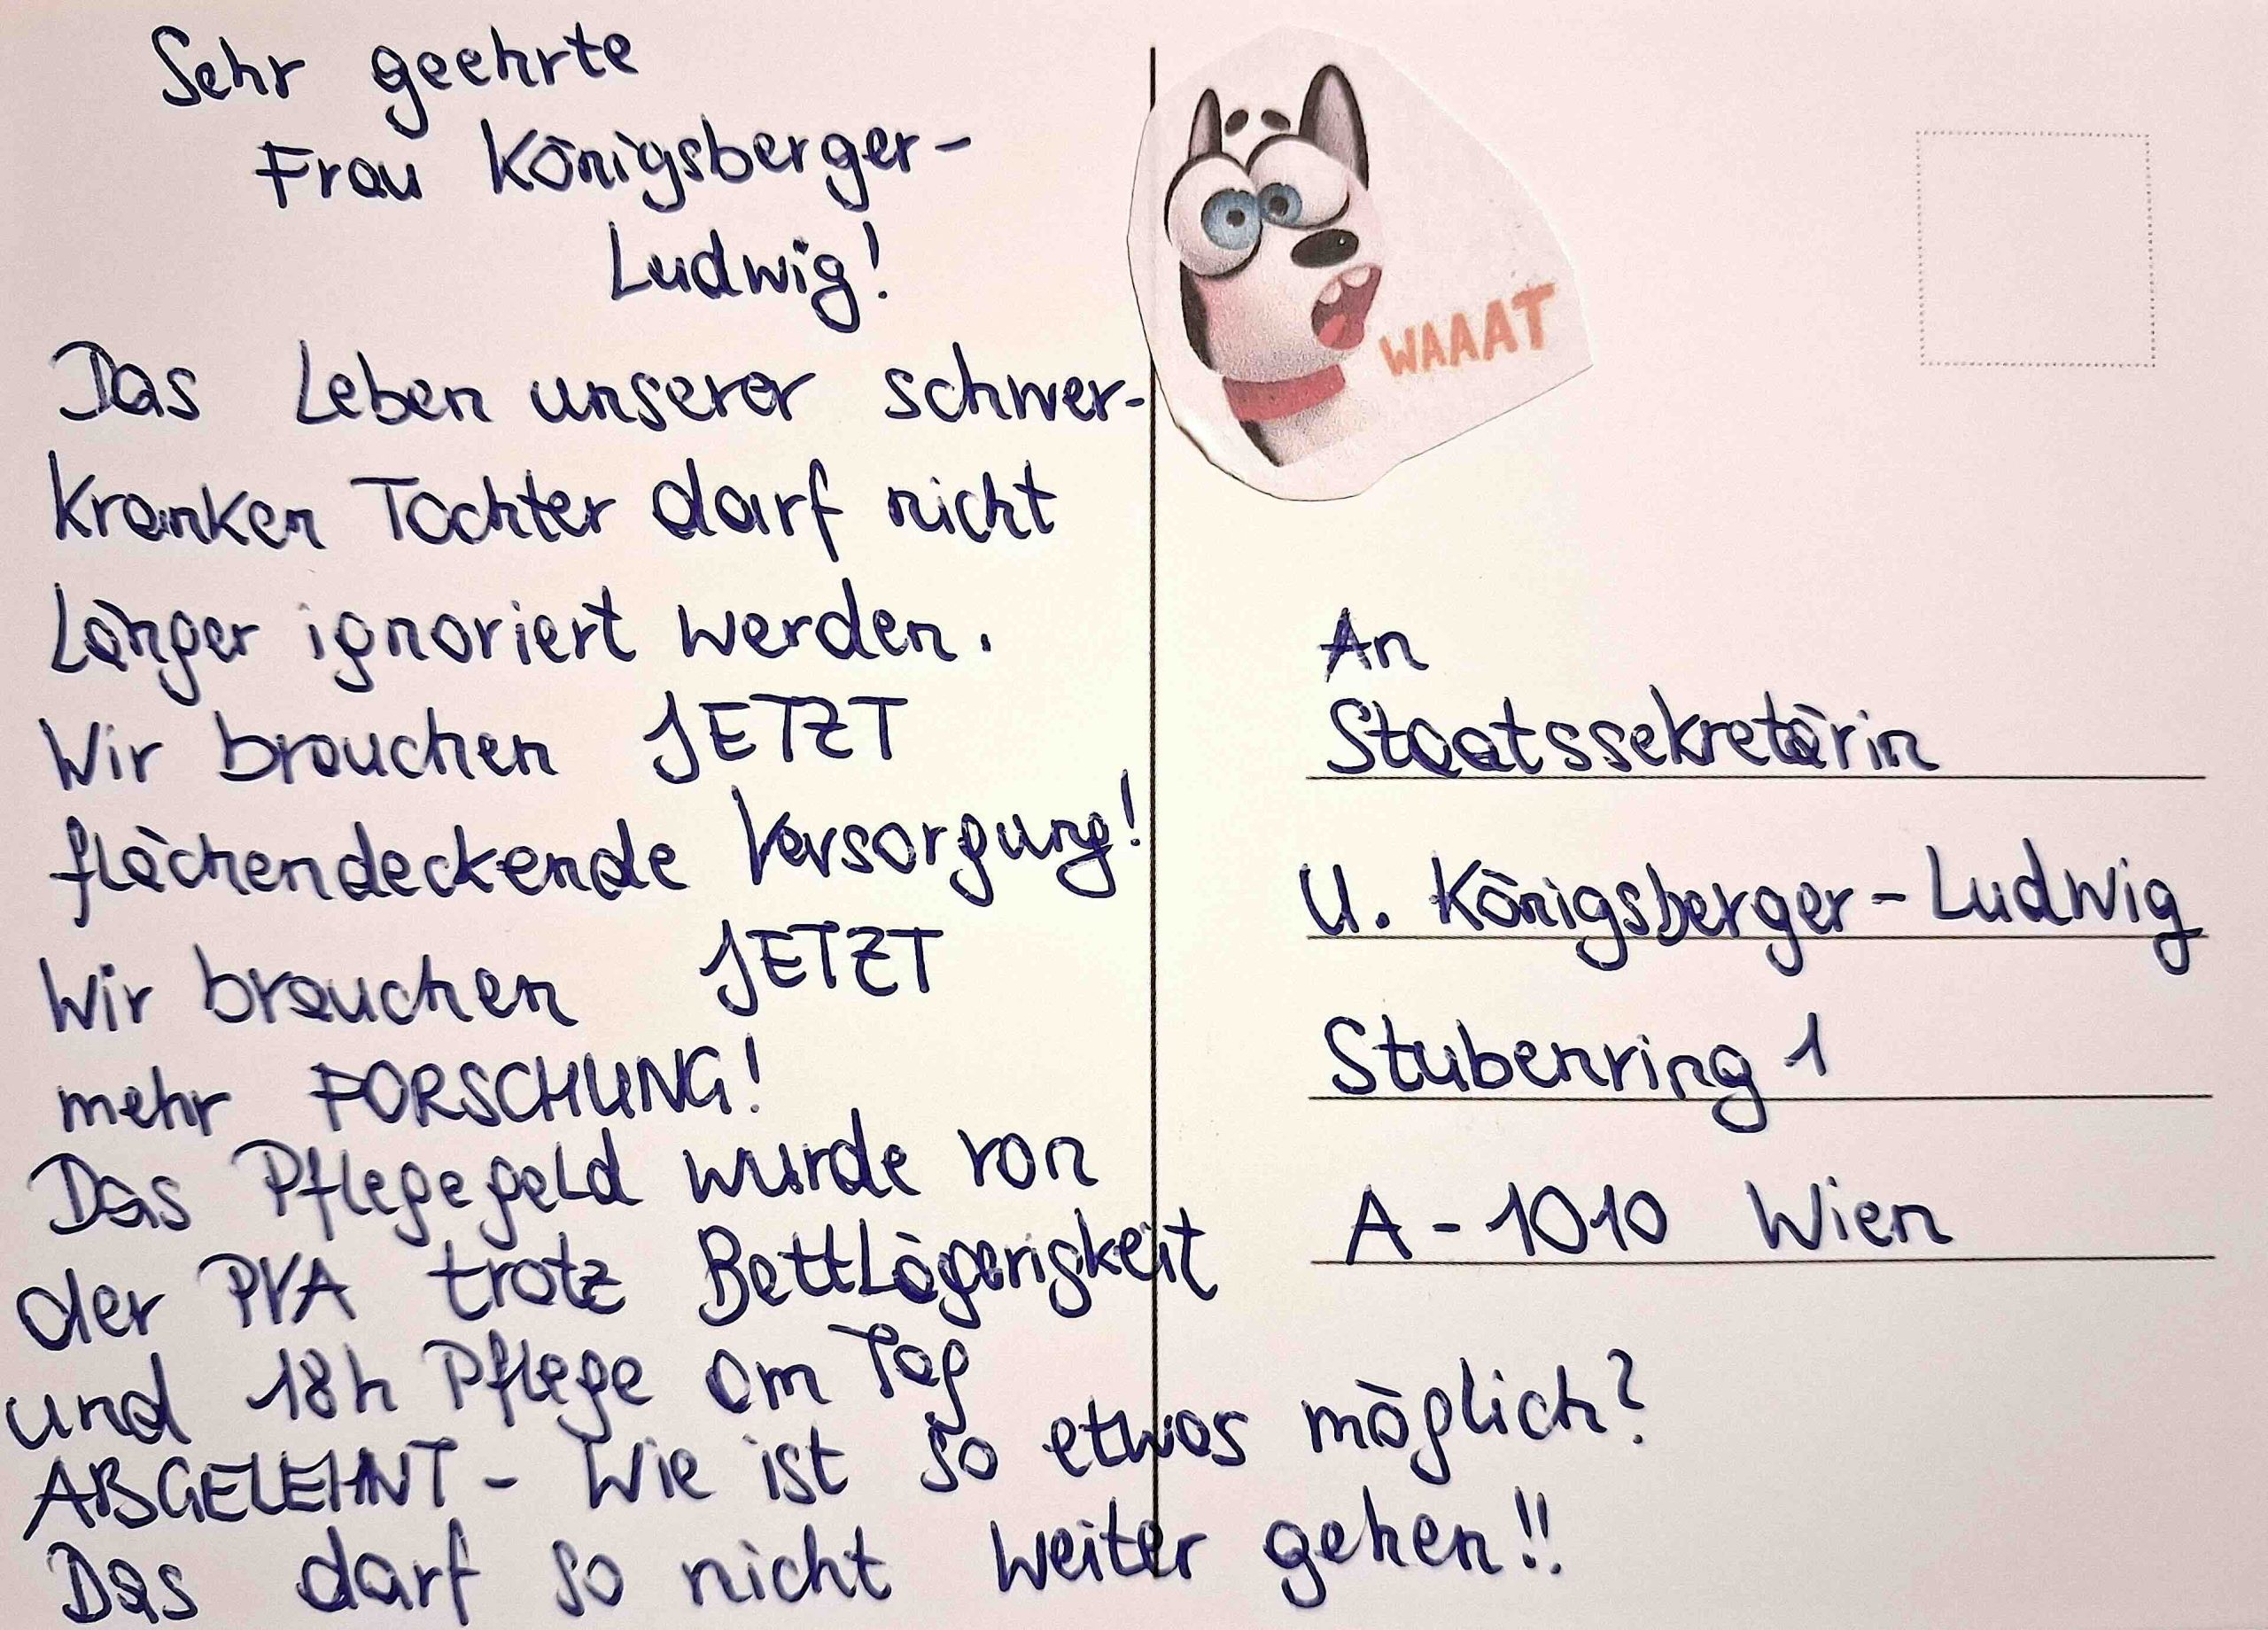 Sehr geehrte
Frau Königsberger-
Ludwig!
Das Leben unserer schwer-
kranken Tochter darf nicht
länger ignoriert werden.
Wir brauchen JETZT
flächendeckende Versorgung!
Wir brauchen JETZT
mehr FORSCHUNG!
Das Pflegegeld wurde von
der PVA trotz Bettlägerigkeit
und 18h Pflege am Tag
ABGELEHNT - Wie ist so etwas möglich?
Das darf so nicht weiter gehen!!
WAAAT
An
Staatssekretärin
U. Königsberger-Ludwig
Stubenring 1
A-1010 Wien